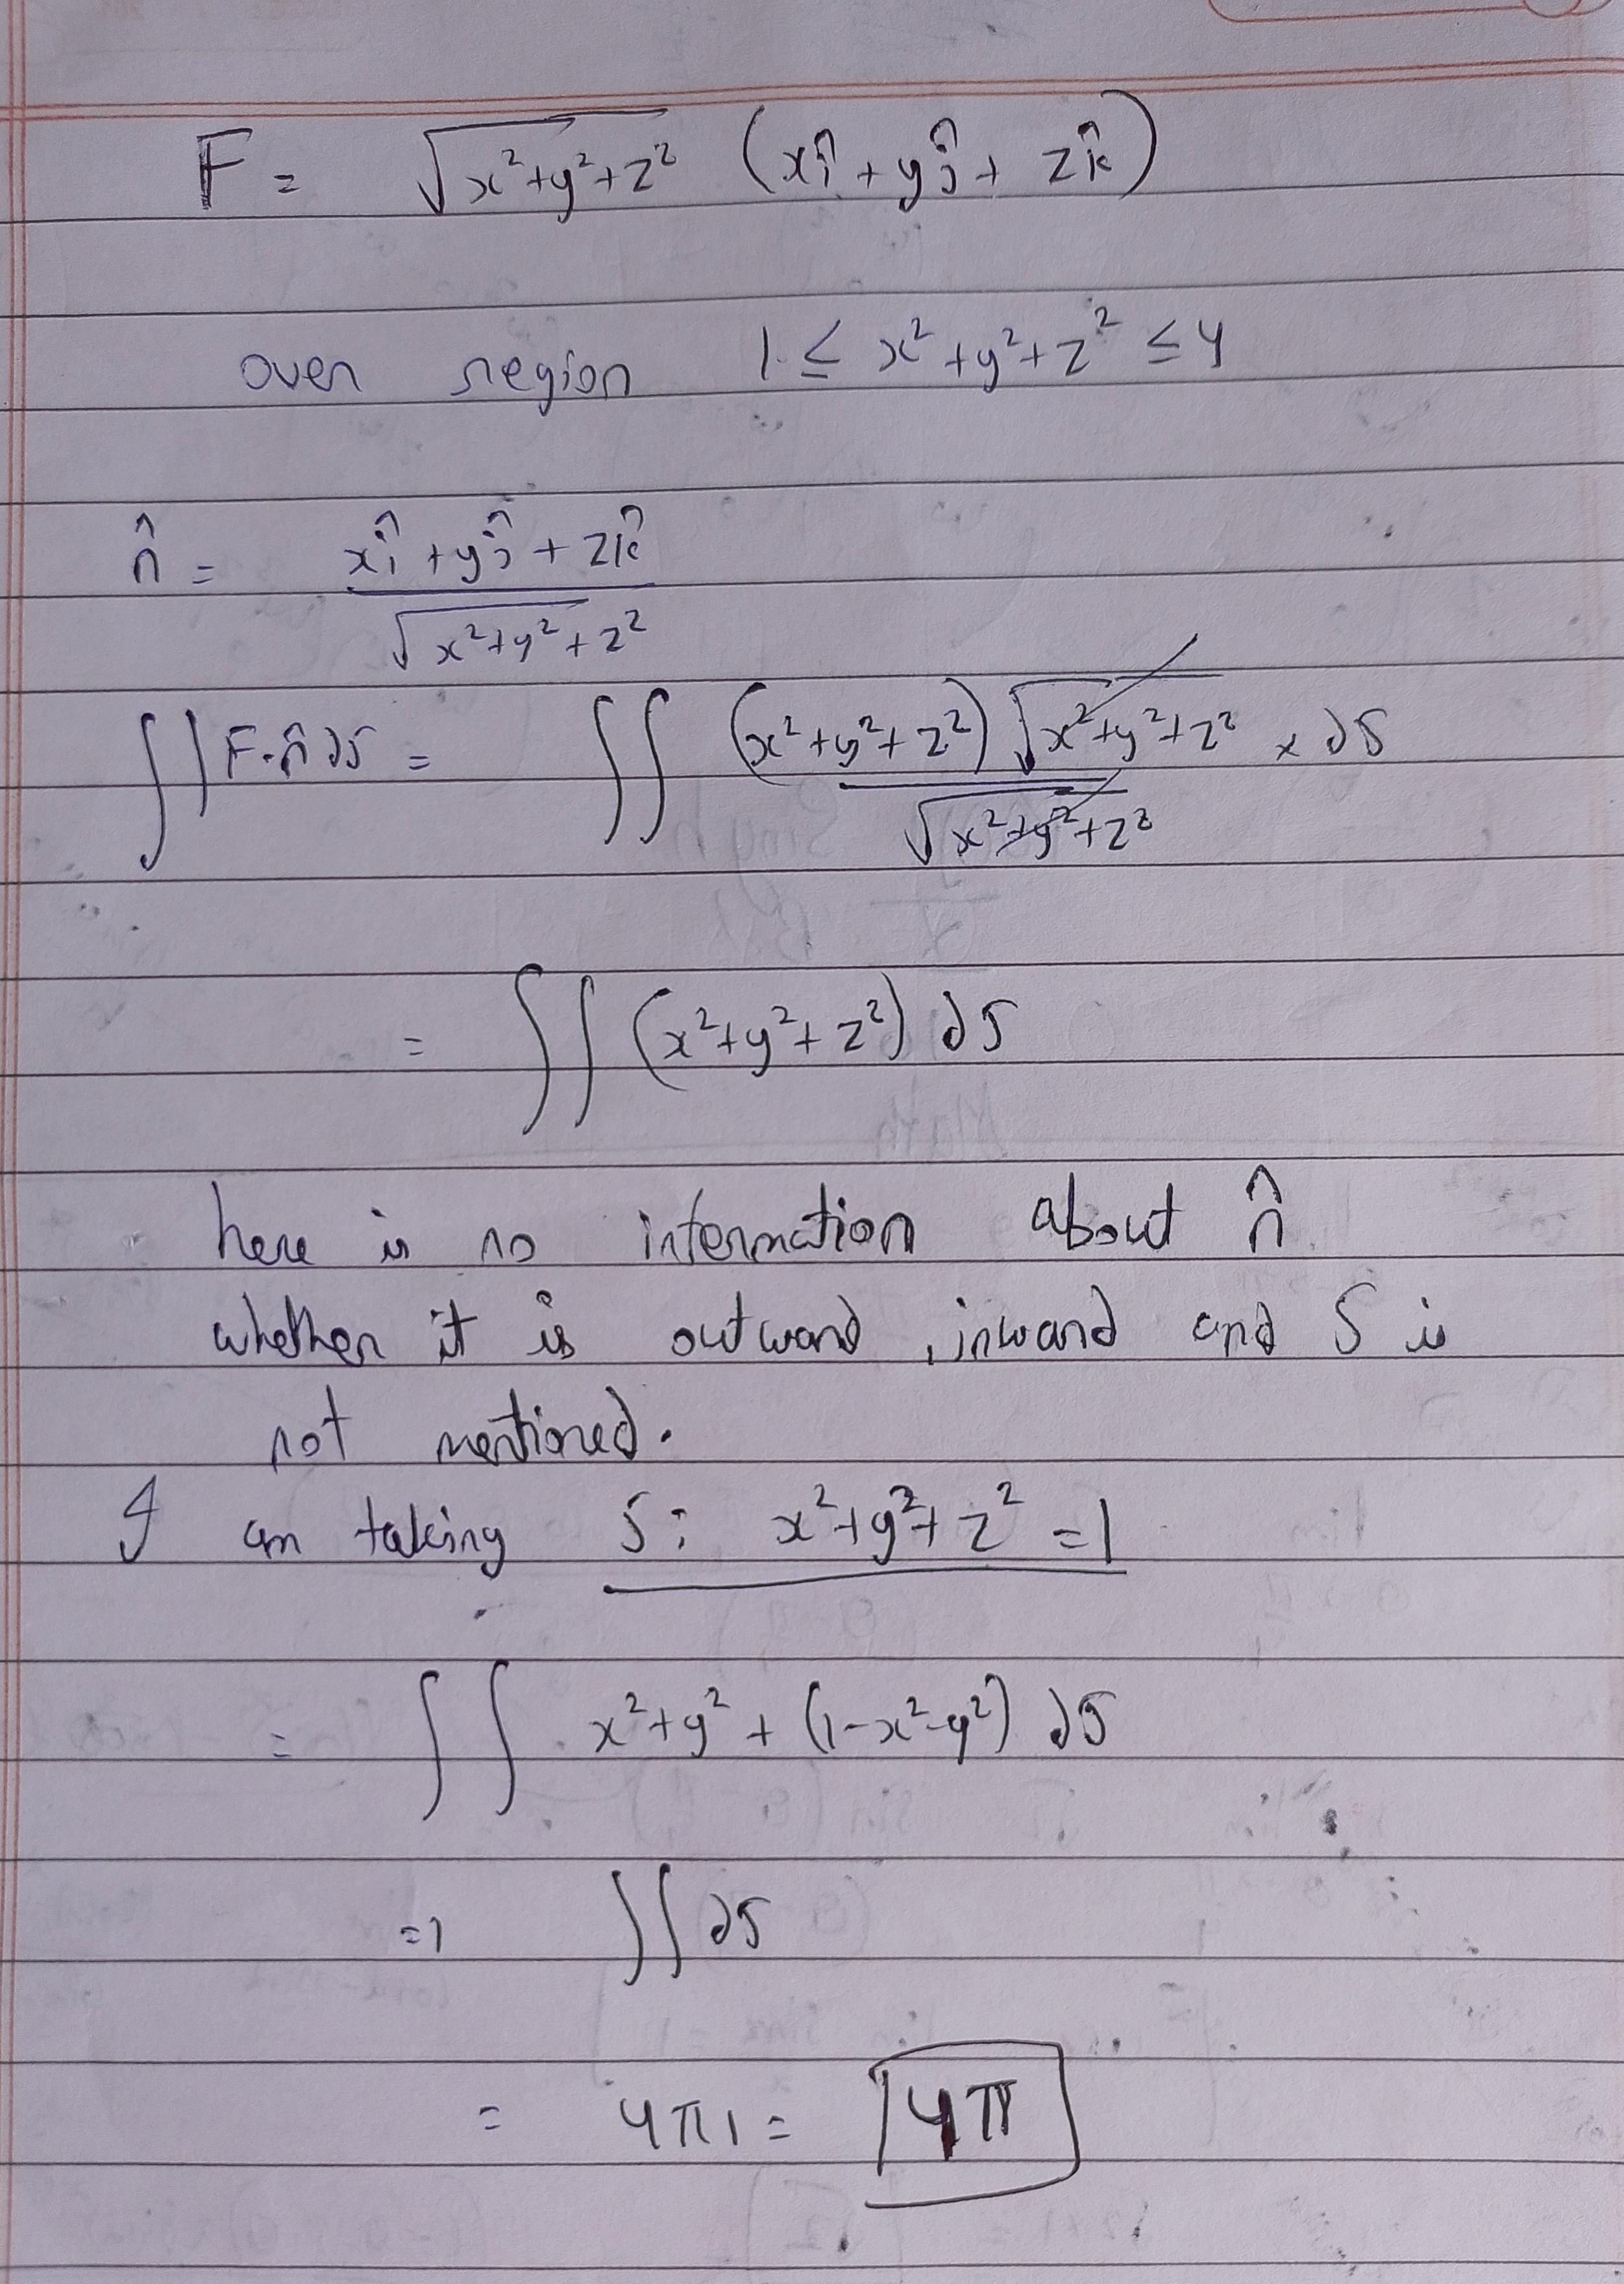 F = √x²+y²+z² (xî + yĵ + zk̂)
over region 1 ≤ x²+y²+z² ≤ 4
n̂ = xî + yĵ + zk̂ / √x²+y²+z²
∫∫ F·n̂ ds = ∫∫ (x²+y²+z²) √x²+y²+z² / √x²+y²+z² × ds
= ∫∫ (x²+y²+z²) ds
here is no information about n̂
whether it is outward, inward and S is
not mentioned.
I am taking S: x²+y²+z² = 1
= ∫∫ x²+y² + (1-x²-y²) ds
=1 ∫∫ ds
= 4π1 = 4π